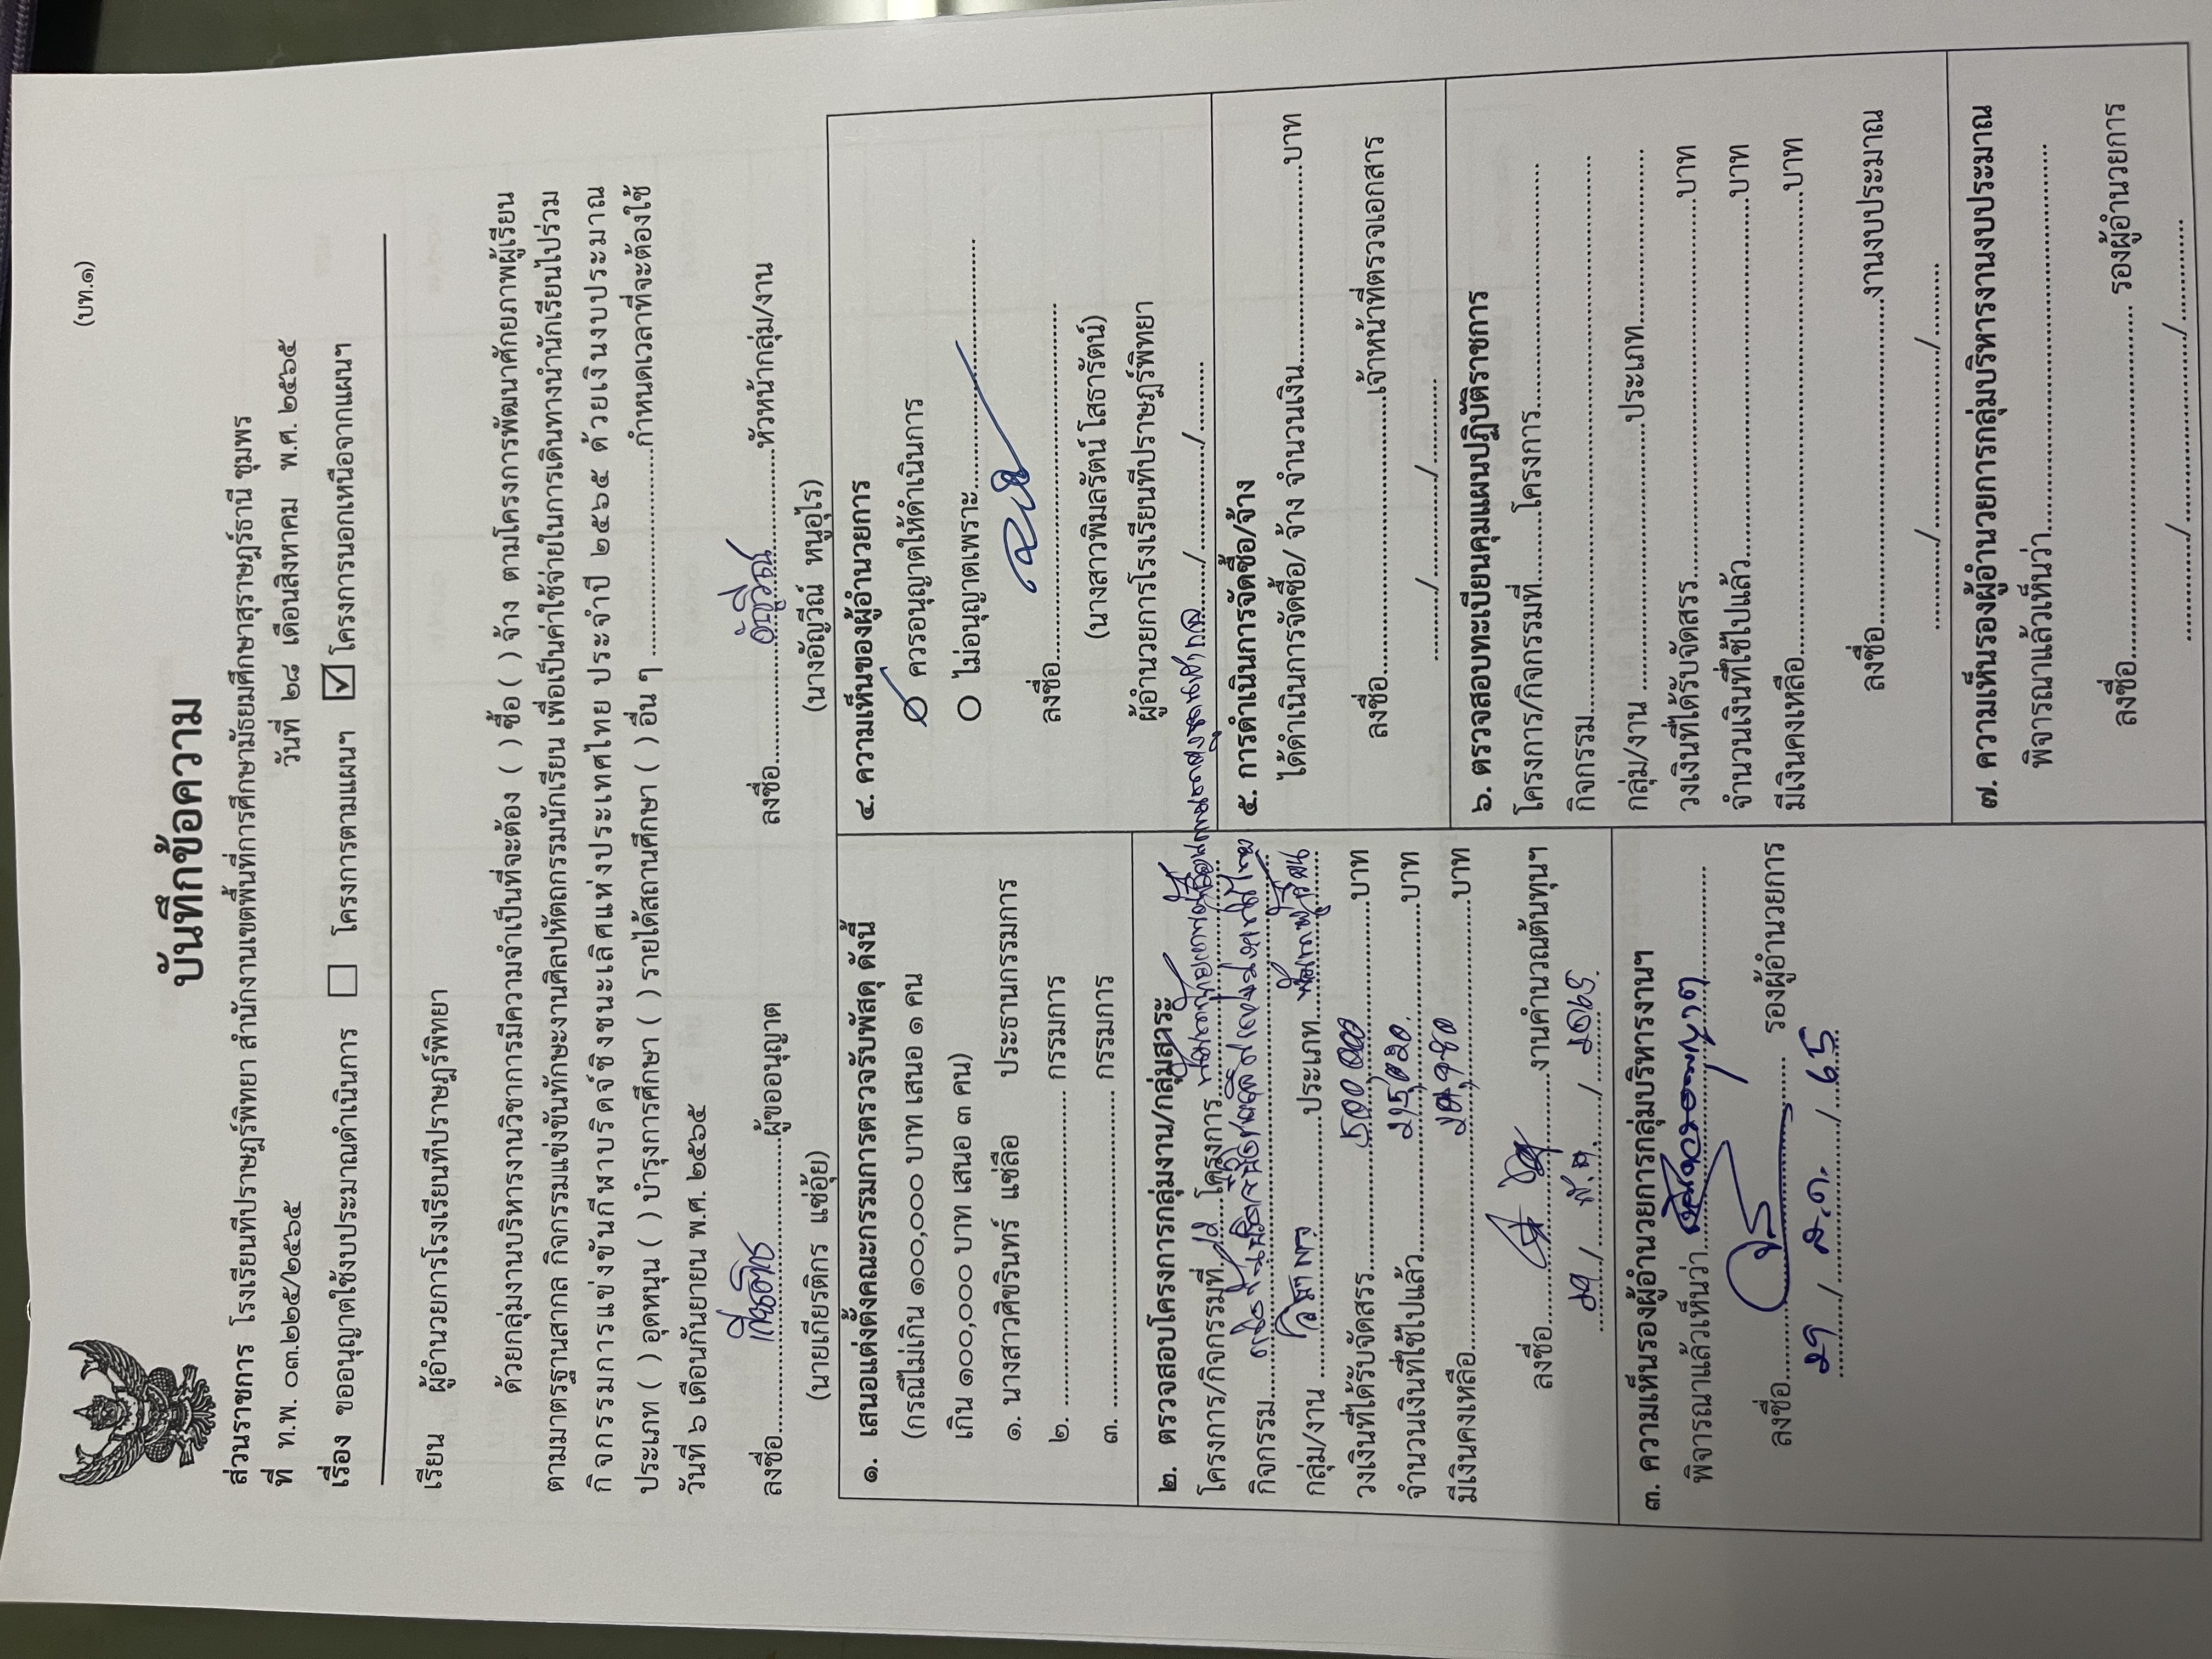 (บท.๑)
บันทึกข้อความ
ส่วนราชการ โรงเรียนทีปราษฎร์พิทยา สำนักงานเขตพื้นที่การศึกษามัธยมศึกษาสุราษฎร์ธานี ชุมพร
ที่ ท.พ. ๐๓.๒๒๕/๒๕๖๕ วันที่ ๒๘ เดือนสิงหาคม พ.ศ. ๒๕๖๕
เรื่อง ขออนุญาตใช้งบประมาณดำเนินการ ☐ โครงการตามแผนฯ ☑ โครงการนอกเหนือจากแผนฯ
เรียน ผู้อำนวยการโรงเรียนทีปราษฎร์พิทยา
ด้วยกลุ่มงานบริหารงานวิชาการมีความจำเป็นที่จะต้อง ( ) ซื้อ ( ) จ้าง ตามโครงการพัฒนาศักยภาพผู้เรียน
ตามมาตรฐานสากล กิจกรรมแข่งขันทักษะงานศิลปหัตถกรรมนักเรียน เพื่อเป็นค่าใช้จ่ายในการเดินทางนำนักเรียนไปร่วม
กิจกรรมการแข่งขันกีฬาบริดจ์ชิงชนะเลิศแห่งประเทศไทย ประจำปี ๒๕๖๕ ด้วยเงินงบประมาณ
ประเภท ( ) อุดหนุน ( ) บำรุงการศึกษา ( ) รายได้สถานศึกษา ( ) อื่น ๆ ........................กำหนดเวลาที่จะต้องใช้
วันที่ ๖ เดือนกันยายน พ.ศ. ๒๕๖๕
ลงชื่อ........................ผู้ขออนุญาต
(นายเกียรติกร แซ่อุ้ย)
ลงชื่อ........................หัวหน้ากลุ่ม/งาน
(นางอัญวีณ์ หนูอุไร)
๑. เสนอแต่งตั้งคณะกรรมการตรวจรับพัสดุ ดังนี้
(กรณีไม่เกิน ๑๐๐,๐๐๐ บาท เสนอ ๑ คน
เกิน ๑๐๐,๐๐๐ บาท เสนอ ๓ คน)
๑. นางสาวศิขรินทร์ แซ่ลือ ประธานกรรมการ
๒. ........................ กรรมการ
๓. ........................ กรรมการ
๒. ตรวจสอบโครงการกลุ่มงาน/กลุ่มสาระ
โครงการ/กิจกรรมที่........โครงการ
กิจกรรม
กลุ่ม/งาน วิชาการ ประเภท
วงเงินที่ได้รับจัดสรร........................บาท
จำนวนเงินที่ใช้ไปแล้ว........................บาท
มีเงินคงเหลือ........................บาท
ลงชื่อ........................งานคำนวณต้นทุนฯ
๒๙ / ส.ค. / ๒๕๖๕
๓. ความเห็นรองผู้อำนวยการกลุ่มบริหารงานฯ
พิจารณาแล้วเห็นว่า
ลงชื่อ........................ รองผู้อำนวยการ
29 / ส.ค. / 65
๔. ความเห็นของผู้อำนวยการ
ควรอนุญาตให้ดำเนินการ
ไม่อนุญาตเพราะ........................
ลงชื่อ........................
(นางสาวพิมลรัตน์ โสธารัตน์)
ผู้อำนวยการโรงเรียนทีปราษฎร์พิทยา
......../................/........
๕. การดำเนินการจัดซื้อ/จ้าง
ได้ดำเนินการจัดซื้อ/ จ้าง จำนวนเงิน........................บาท
ลงชื่อ........................เจ้าหน้าที่ตรวจเอกสาร
......../................/........
๖. ตรวจสอบทะเบียนคุมแผนปฏิบัติราชการ
โครงการ/กิจกรรมที่........โครงการ........................
กิจกรรม........................
กลุ่ม/งาน ........................ประเภท........................
วงเงินที่ได้รับจัดสรร........................บาท
จำนวนเงินที่ใช้ไปแล้ว........................บาท
มีเงินคงเหลือ........................บาท
ลงชื่อ........................งานงบประมาณ
......../................/........
๗. ความเห็นรองผู้อำนวยการกลุ่มบริหารงานงบประมาณ
พิจารณาแล้วเห็นว่า........................
ลงชื่อ........................ รองผู้อำนวยการ
......../................/........